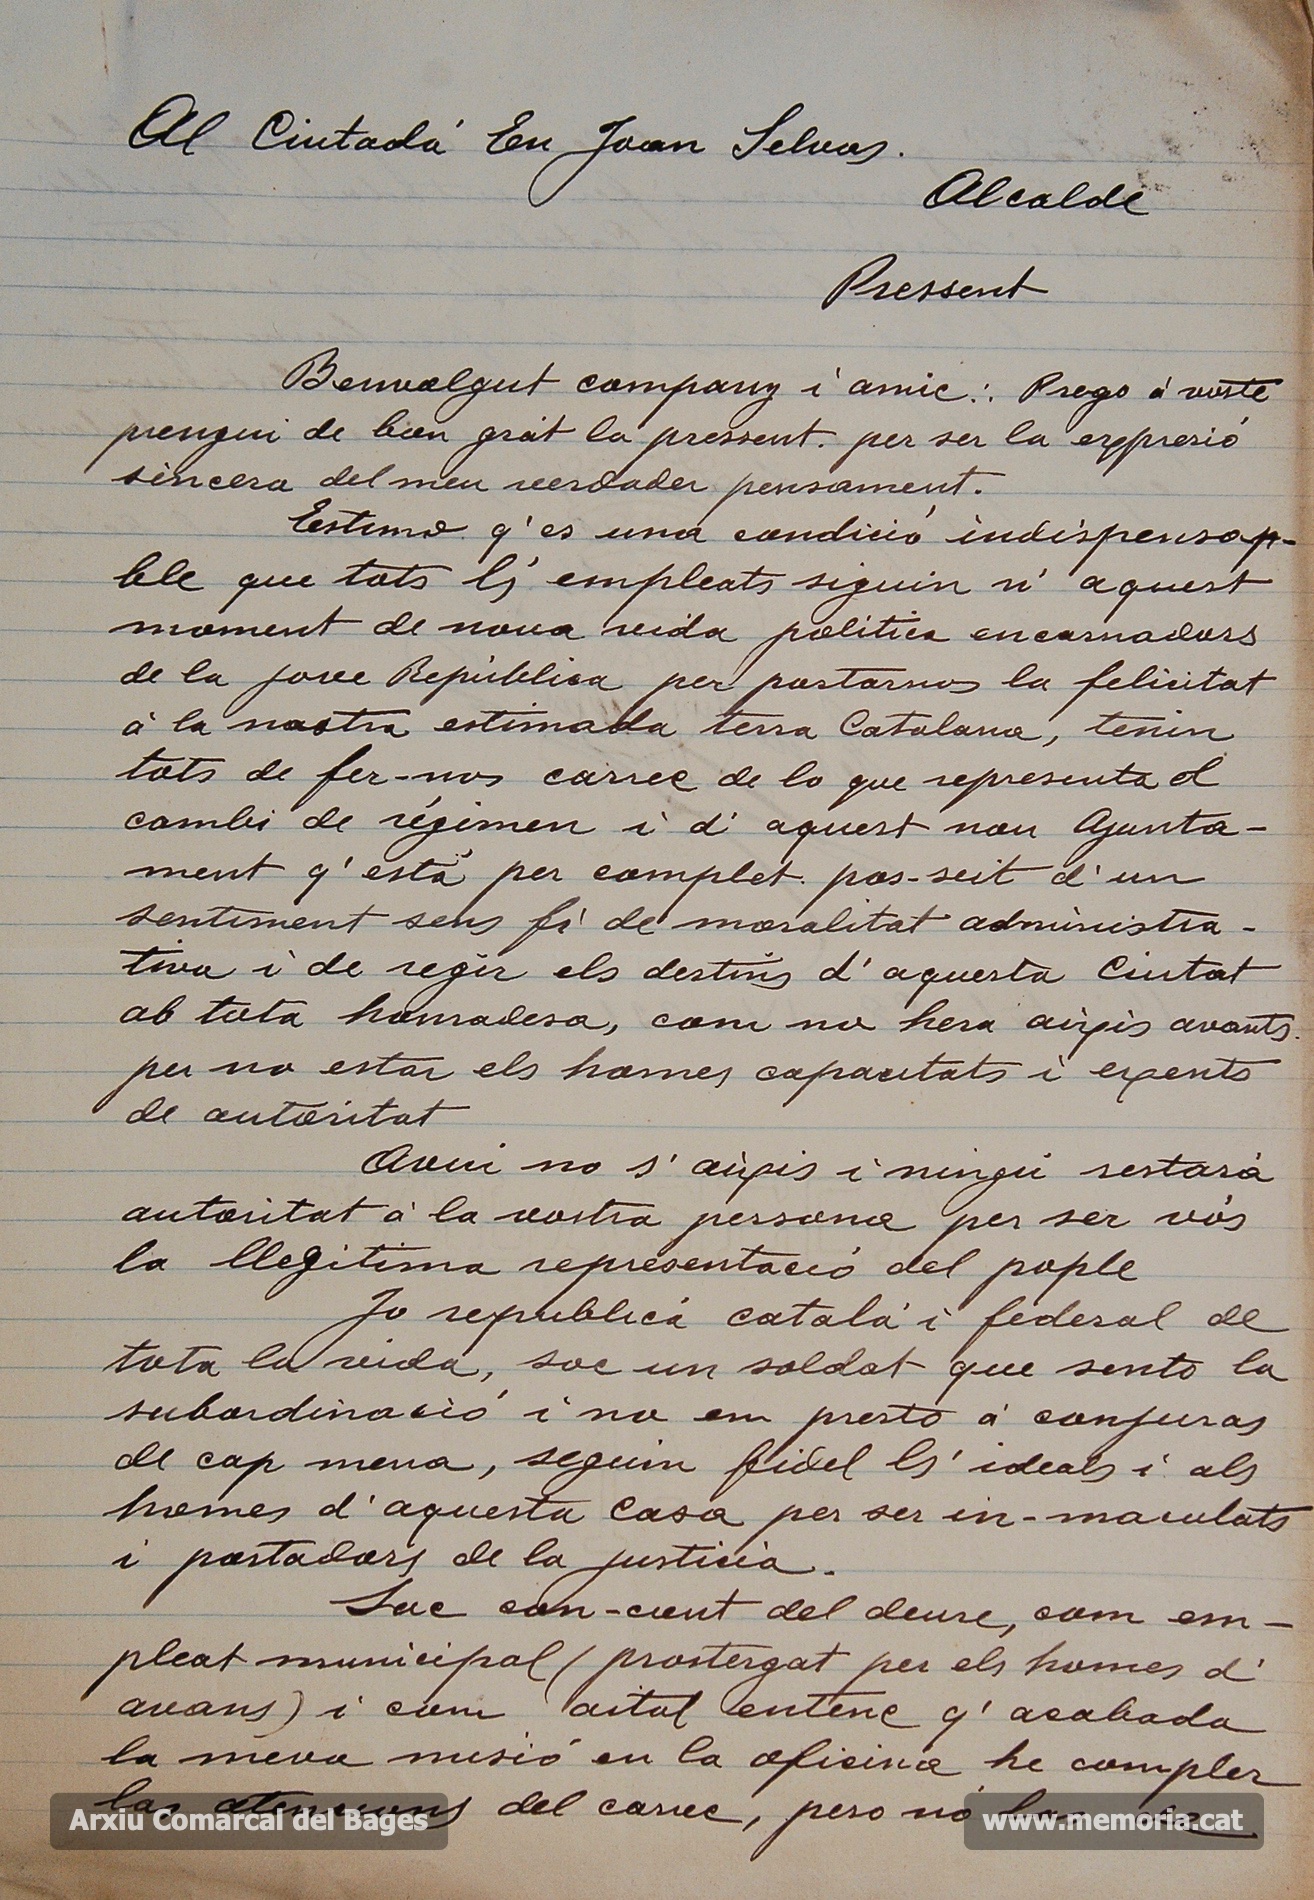 Al Ciutadá En Joan Selvas.
Alcalde
Pressent
Benvolgut company i amic: Prego á vosté
prengui de bon grát la pressent. per ser la expresió
sincera del meu verdader pensament.
Estimo q'es una condició indispensap-
ble que tots ls' empleats siguin n' aquest
moment de nova vida politica encarnadors
de la jove República per portarnos la felicitat
á la nostra estimada terra Catalana, tenin
tots de fer-nos carrec de lo que representa el
cambi de régimen i d' aquest nou Ajunta-
ment q' está per complet. pos-seit d' un
sentiment sens fi de moralitat administra-
tiva i de regir els destins d' aquesta Ciutat
ab tota honradesa, com no hera aixis avants.
per no estar els homes capacitats i exents
de autoritat
Avui no s' aixis i ningú restará
autoritat á la vostra persona per ser vós
la llegitima representació del pople
Jo republicá catalá i federal de
tota la vida, soc un soldat que sento la
subordinació i no em presto á conjuras
de cap mena, seguin fidel ls' ideals i als
homes d' aquesta Casa per ser in-maculats
i portadors de la justicia.
Soc con-cient del deure, com em-
pleat municipal (prostergat per els homes d'
avans) i com aital entenc q' acabada
la meva misió en la oficina he compler
las atencions del carrec, pero nó
Arxiu Comarcal del Bages
www.memoria.cat